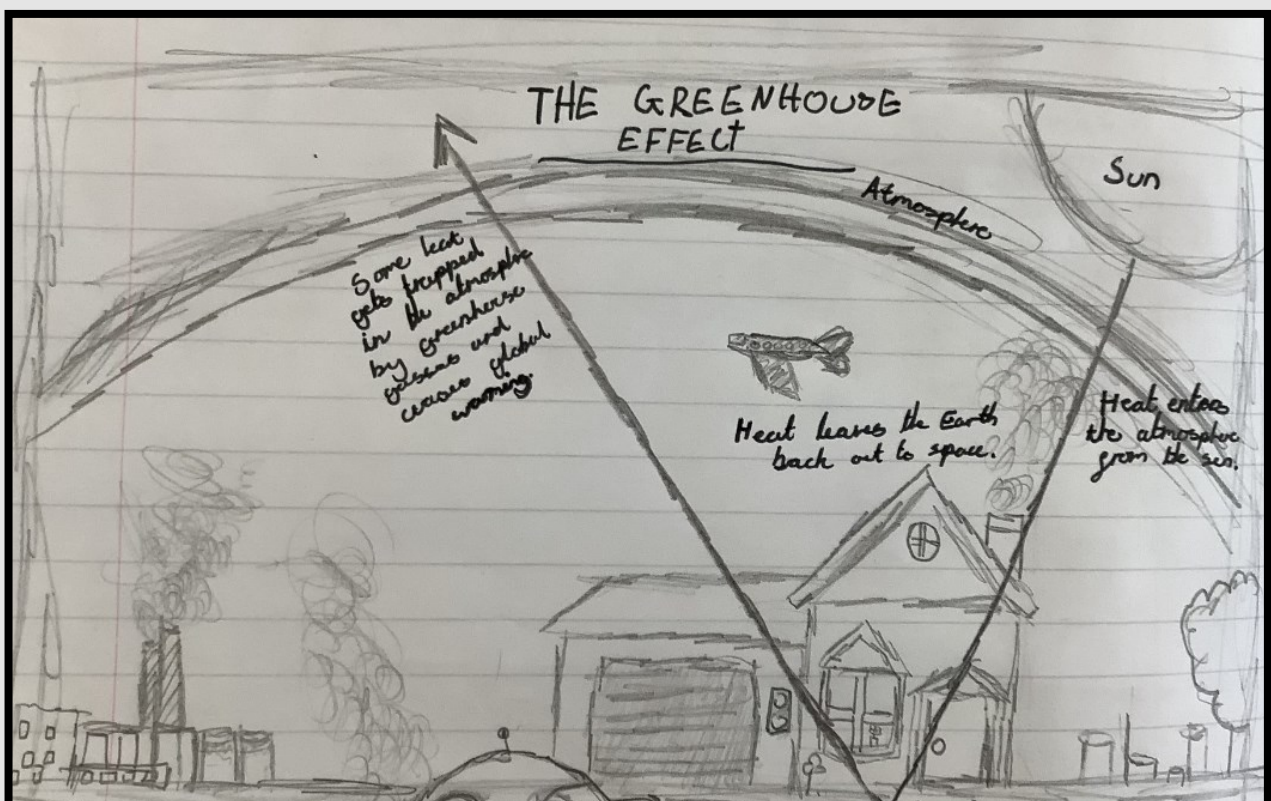 THE GREENHOUSE
EFFECT
Sun
Atmosphere
Some heat
gets trapped
in the atmosphre
by greenhouse
gasses and
causes global
warming.
Heat leaves the Earth
back out to space.
Heat enters
the atmosphere
from the sun.